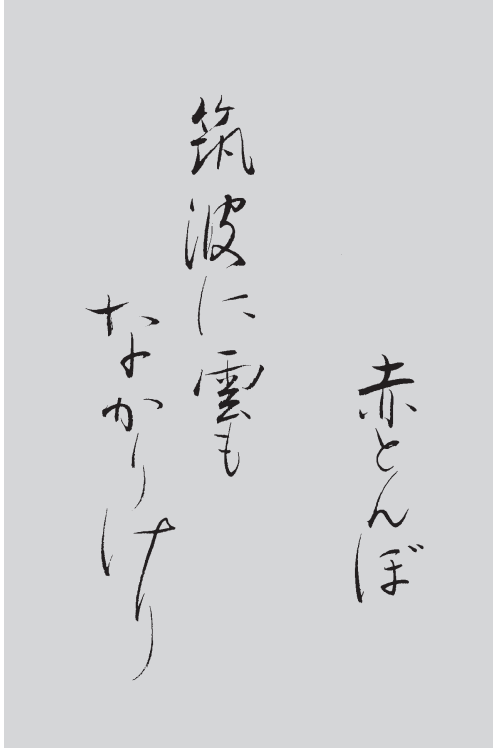 赤とんぼ
筑波に雲も
なかりけり